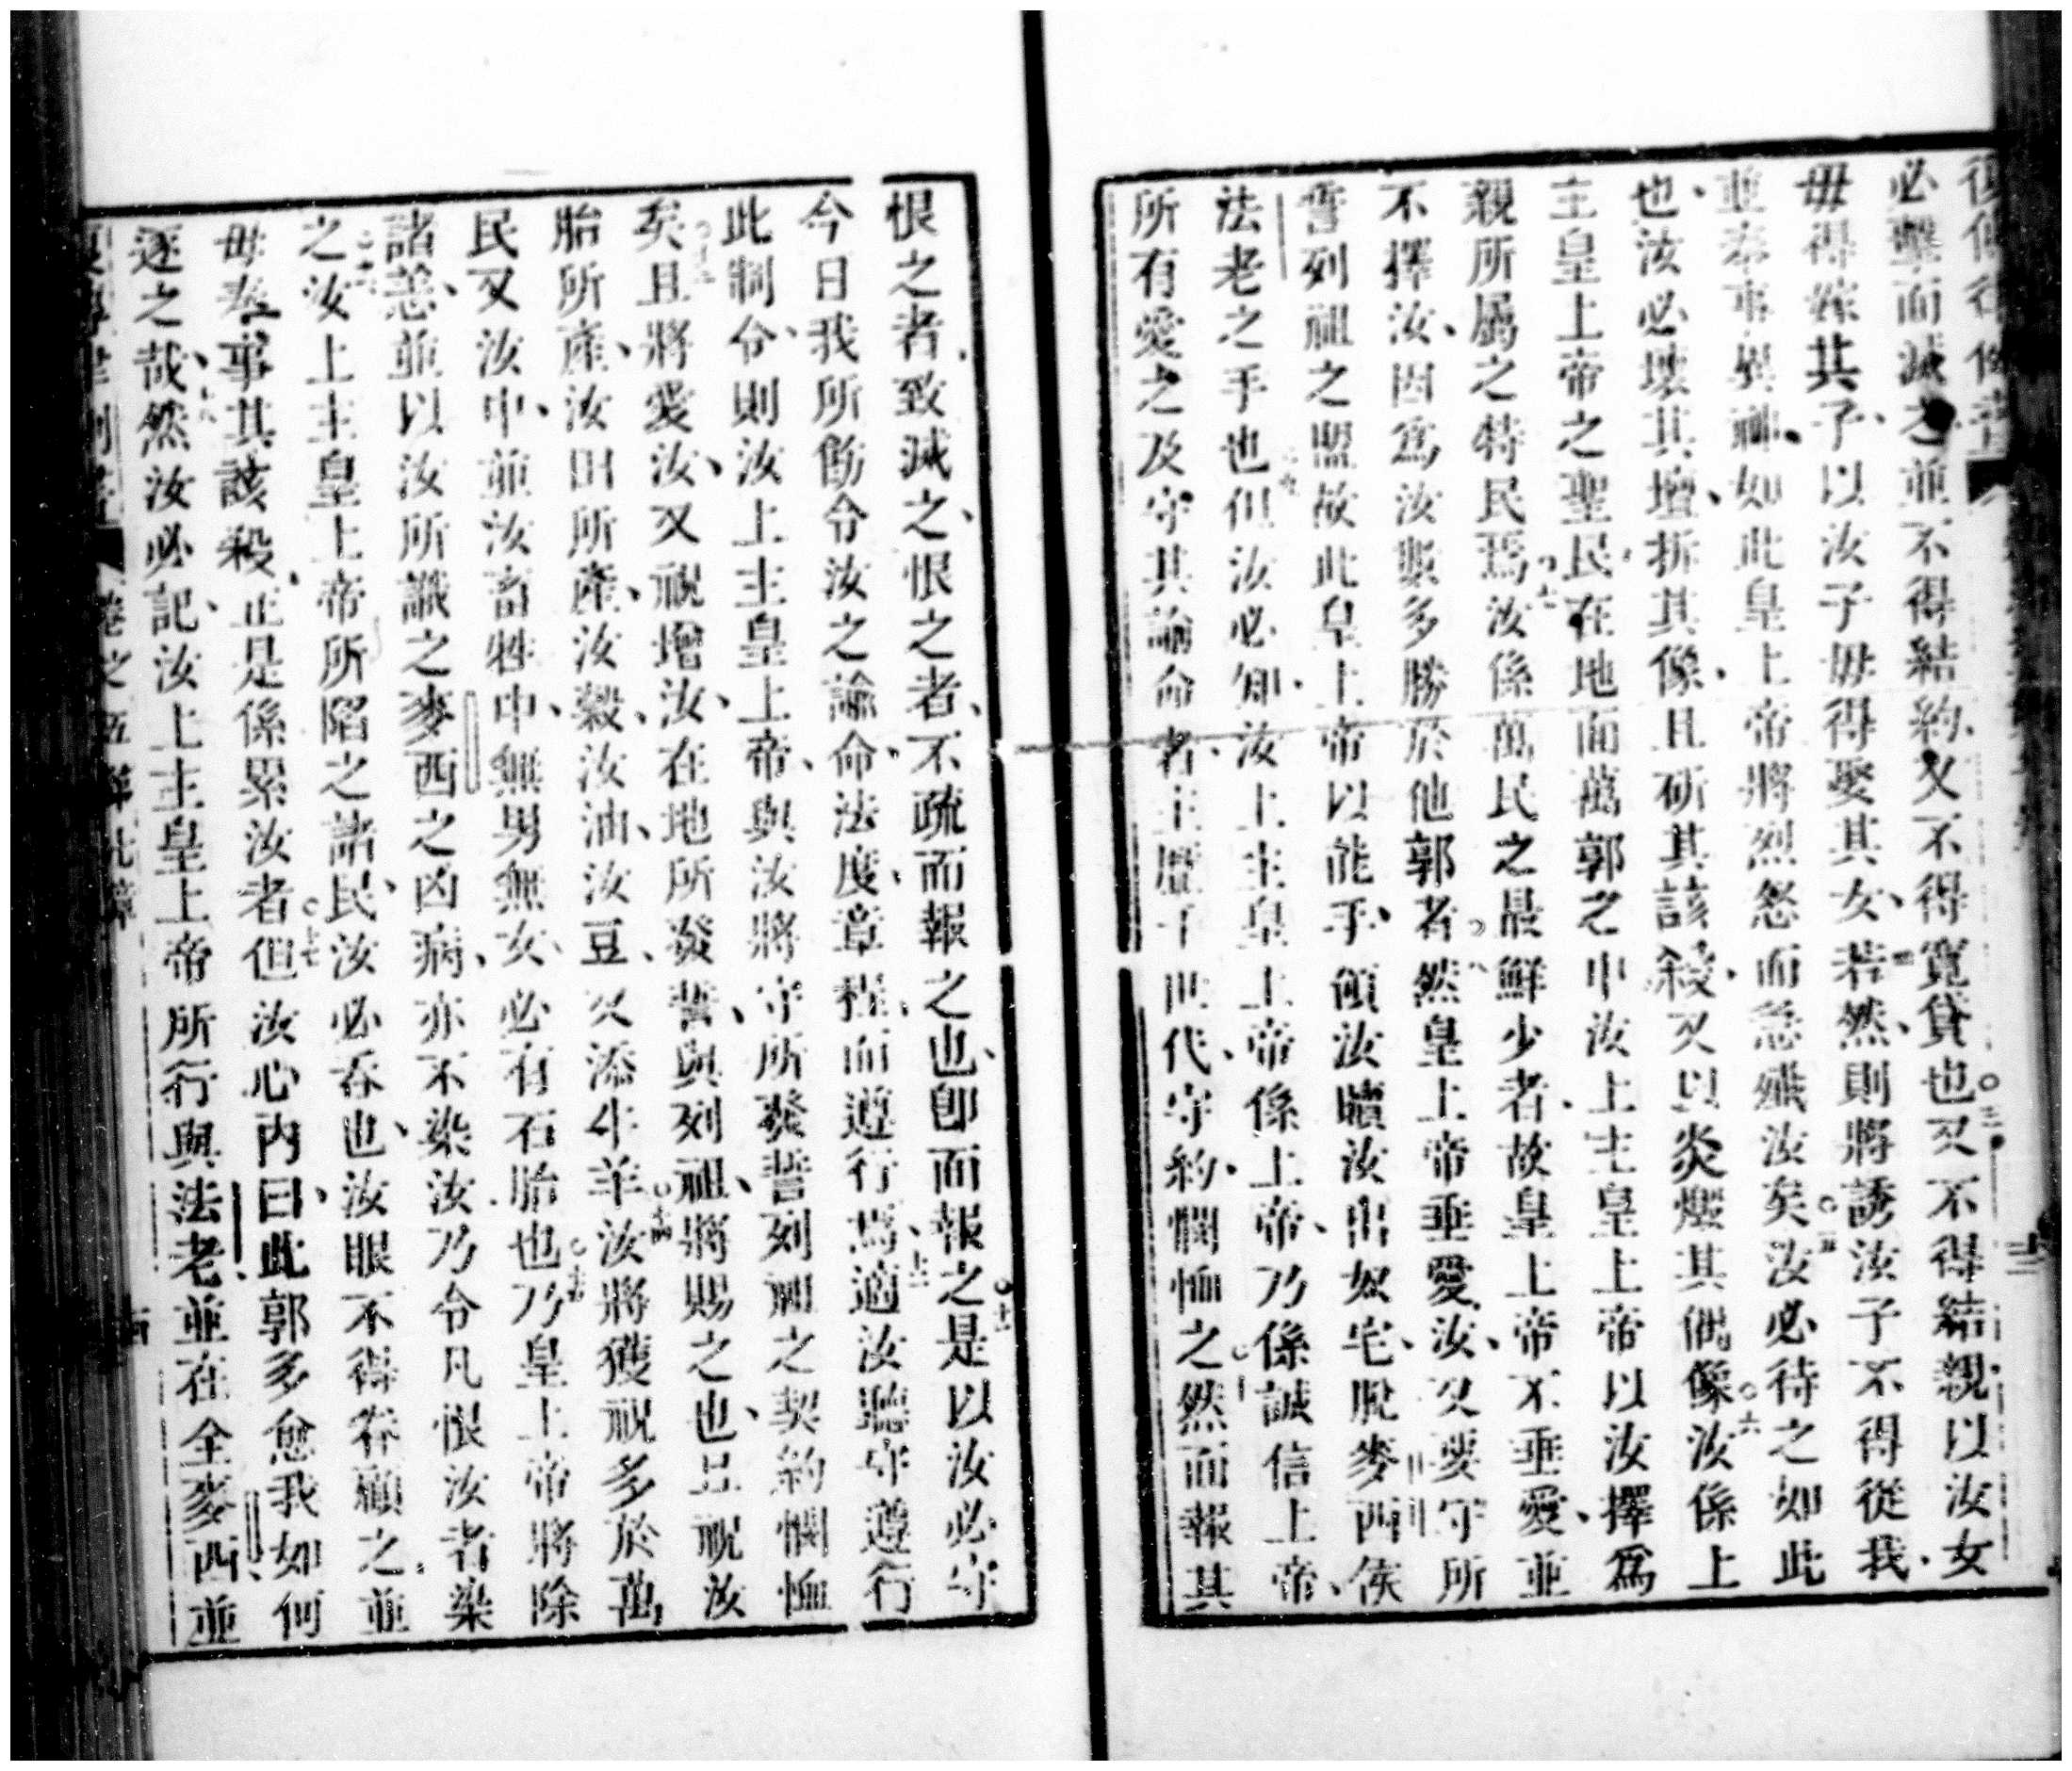 必擊而滅之並不得結約、又不得寬貸也○三又不得結親以汝女
毋得嫁其子、以汝子毋得娶其女、○四若然、則將誘汝子不得從我、
並奉事異神、如此皇上帝將烈怒而急殲汝矣○五汝必待之如此
也、汝必壞其壇、拆其像、且斫其該殺、又以炎燬其偶像○六汝係上
主皇上帝之聖民、在地面萬郭之中汝上主皇上帝以汝擇為
親所屬之特民焉○七汝係萬民之最鮮少者、故皇上帝不垂愛、並
不擇汝、因為汝數多勝於他郭者○八然皇上帝垂愛汝、又要守所
誓列祖之盟故此皇上帝以能手、領汝贖汝出奴宅、脫麥西侯
法老之手也○九但汝必知、汝上主皇上帝係上帝、乃係誠信上帝、
所有愛之及守其諭命者、主歷千世代、守約、憫恤之○十然而報其
恨之者、致滅之、恨之者、不疏而報之也、即面報之○十一是以汝必守
今日我所飭令汝之諭命、法度、章程、而遵行焉、○十二適汝聽守遵行
此制令、則汝上主皇上帝、與汝將守所發誓列祖之契約憫恤
矣○十三且將愛汝、又祝增汝、在地所發誓、與列祖、將賜之也、且祝汝
胎所產、汝田所產、汝穀、汝油、汝豆、又添牛羊○十四汝將獲祝多於萬
民又汝中、並汝畜牲中、無男無女、必有石胎也○十五乃皇上帝將除
諸恙、並以汝所識之麥西之凶病、亦不染汝、乃令凡恨汝者染
之○十六汝上主皇上帝所陷之諸民、汝必吞也、汝眼不得眷顧之、並
毋奉事其該殺、正是係累汝者○十七但汝心內曰、此郭多愈我、如何
逐之哉、○十八然汝必記、汝上主皇上帝所行與法老、並在全麥西並